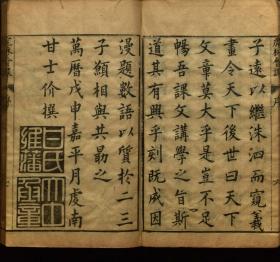 子遠以繼洙泗而窺羲
畫令天下後世曰天下
文章莫大乎是豈不
暢吾謀文講學之旨斯
道其有興乎刻既成因
漫題數語以質於二三
子願相與共勗之
萬曆戊申嘉平月虔南
甘士价撰